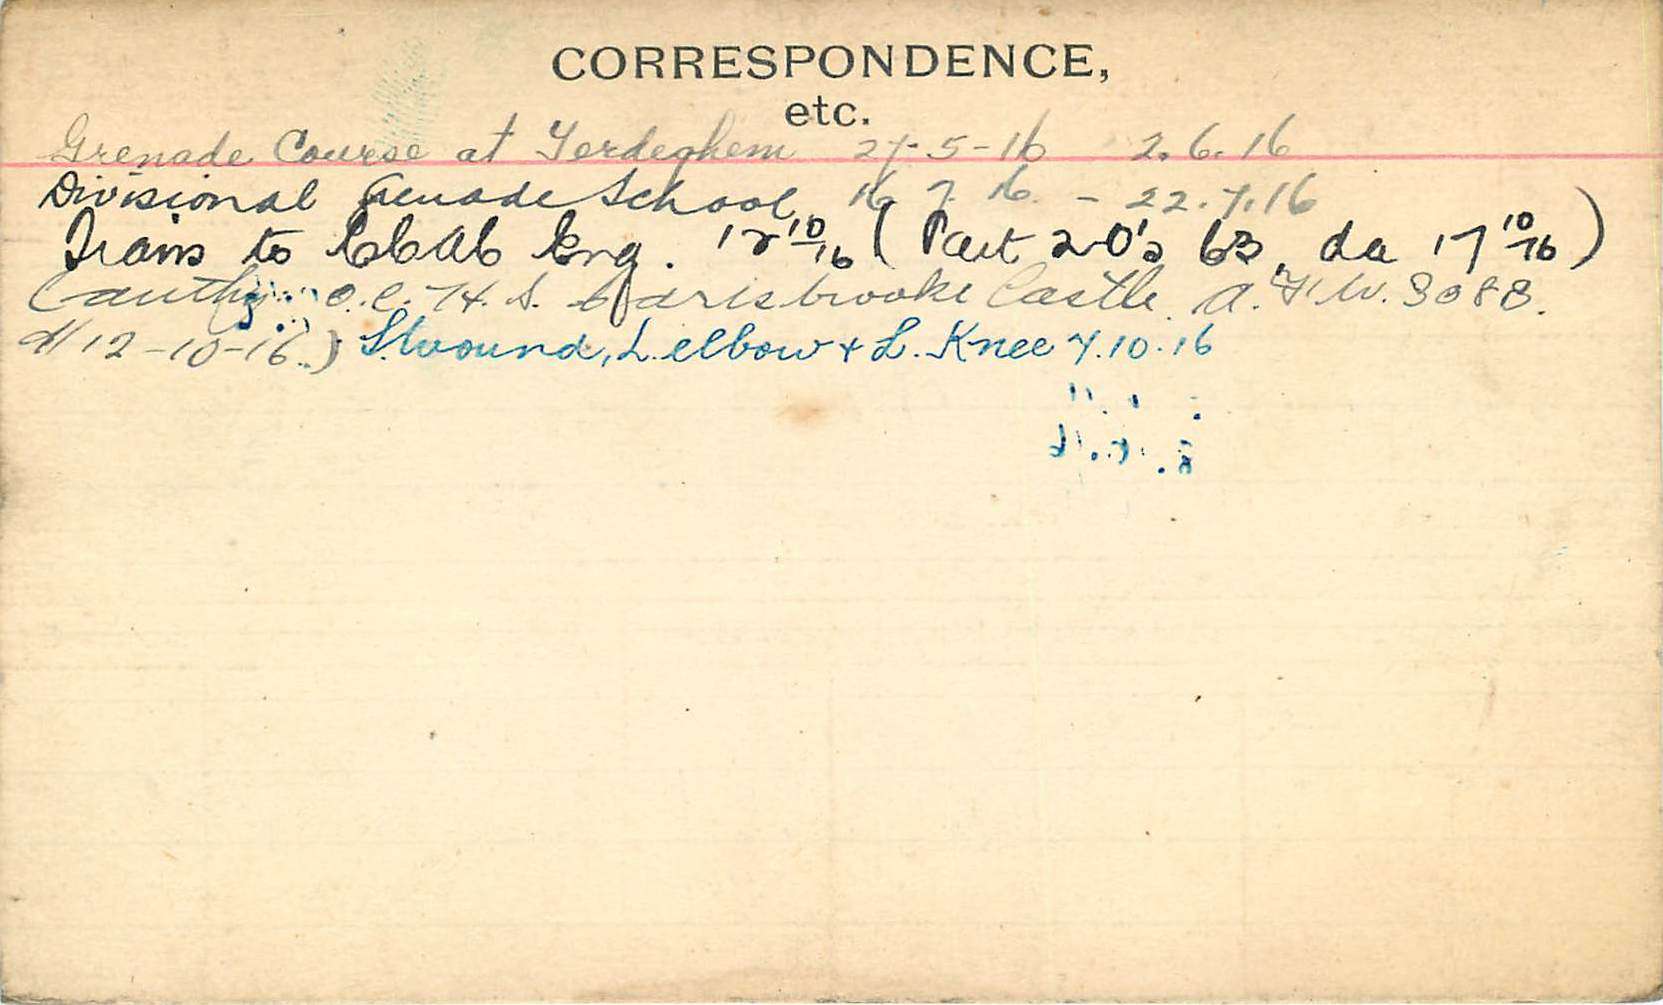 CORRESPONDENCE,
etc.
Grenade Course at Terdeghem 27-5-16 2.6.16
Divisional Grenade School, 16.7.16 - 22.7.16
Trans to CCAC Eng. 12 10/16 (Part 2 O's 63 da 17 10/16)
(auth O.C. H.S. Carisbrooke Castle. A.F.W. 3083.
d/12-10-16.) S. wound, L. elbow + L. Knee 7.10.16